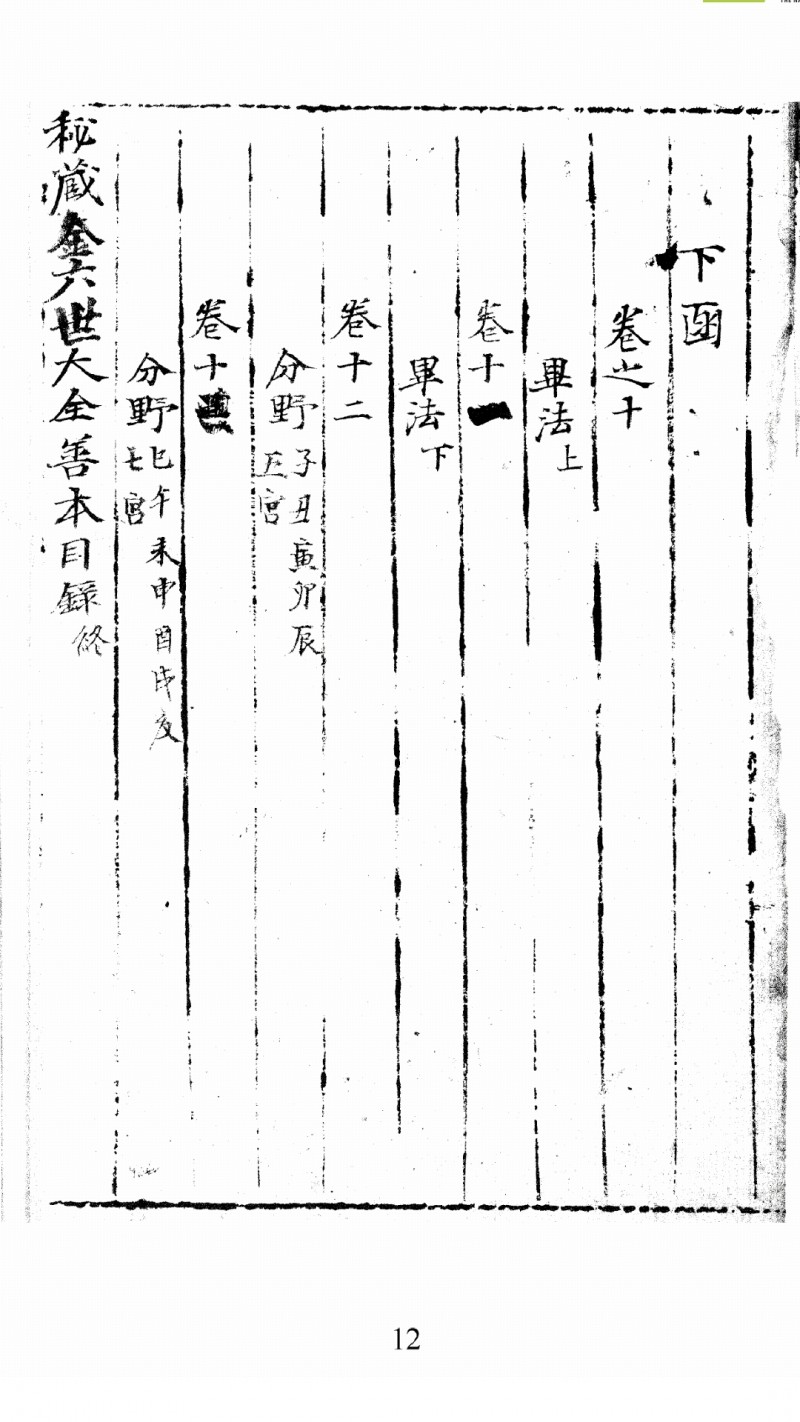 下函
卷之十
畢法上
卷十一
畢法下
卷十二
分野子丑寅卯辰五宮
卷十三
分野巳午未申酉戌亥七宮
秘藏金六世大全善本目錄終
12